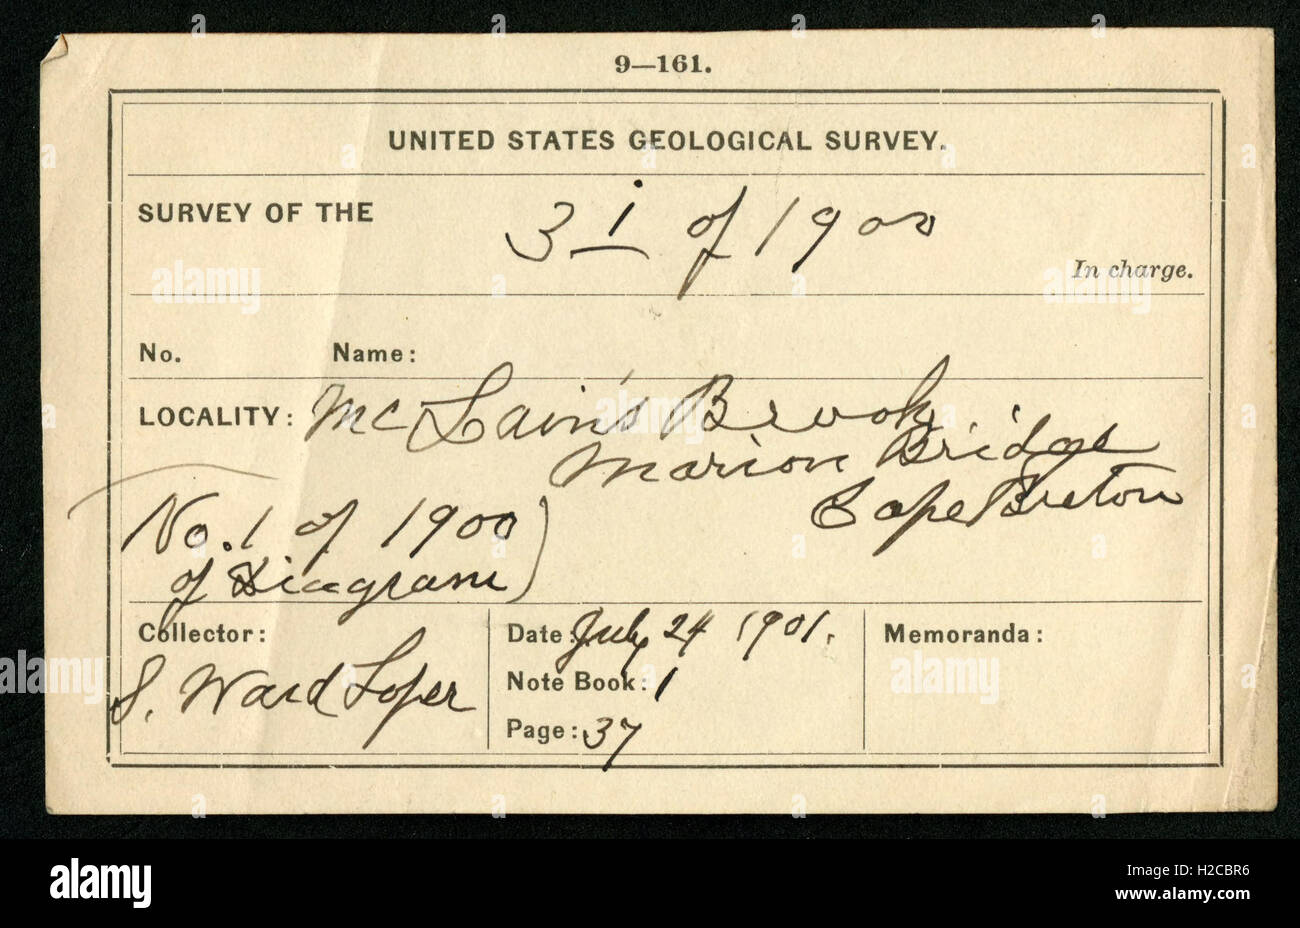 9—161.
UNITED STATES GEOLOGICAL SURVEY.
SURVEY OF THE 3 i of 1900
In charge.
No. Name:
LOCALITY: McLain's Brook
Marion Bridge
Cape Breton
No. 1 of 1900)
of Diagram
Collector: S. Ward Loper
Date: July 24 1901.
Note Book: 1
Page: 37
Memoranda:
alamy
alamy stock photo
H2CBR6
www.alamy.com